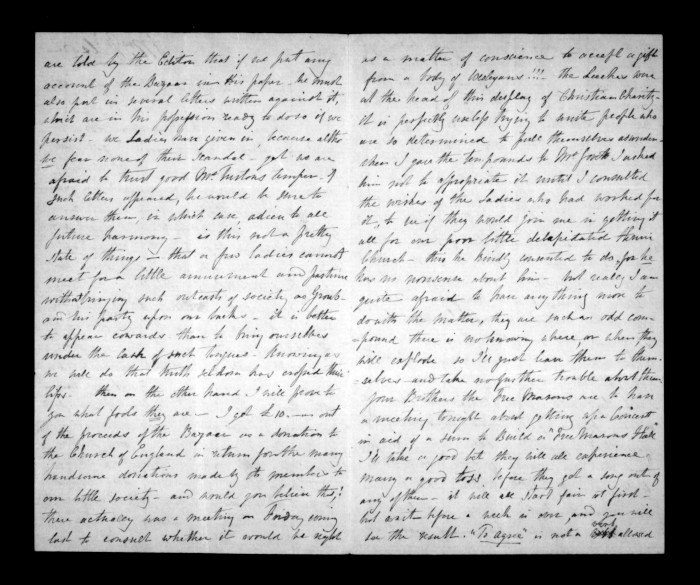 are told by the Editor that if we put any
account of the Bazaar in His paper - he must
also put in several letters written against it,
which are in his possession ready to do so if we
persist - we Ladies have given in, because altho
we fear none of their Scandal - yet we are
afraid to trust good Mr Turtons temper. If
such letters appeared, he would be sure to
answer them, in which case adieu to all
future harmony - is this not a pretty
state of things - that a few ladies cannot
meet for a little amusement and pastime
without bringing such outcasts of society as
and his party upon our backs - it is better
to appear cowards than to bring ourselves
under the lash of such tongues. Knowing as
we well do that truth seldom has crossed their
lips - then on the other hand I will prove to
you what fools they are - I got £10 - out
of the proceeds of the Bazaar as a donation to
the Church of England in return for the many
handsome donations made by its members to
our little society - and would you believe this!
there actually was a meeting on Friday evening
last to consult whether it would be right
as a matter of conscience to accept a gift
from a body of Wesleyans!!! the deacons were
at the head of this display of Christian Charity -
It is perfectly useless trying to unite people who
are so determined to pull themselves asunder
when I gave the ten pounds to Mr I asked
him not to appropriate it until I consulted
the wishes of the Ladies who had worked for
it, to see if they would join me in getting it
all for our poor little delapidated
Church - this he kindly consented to do, for he
has no nonsense about him - but really I am
quite afraid to have any thing more to
do with the matter, they are such an odd com-
pound there is no knowing where, or when they
will explode so I'll just leave them to them-
selves - and take no further trouble about them.
Your Brothers the Free Masons are to have
a meeting tonight about getting up a Concert
in aid of a sum to Build a "Free Masons Hall"
I'll take a good bit they will all experience
many a good toss, before they get a song out of
any of them - it will all start fair at first -
but wait before a week is over, and you will
see the result. "To Agree" is not a word allowed